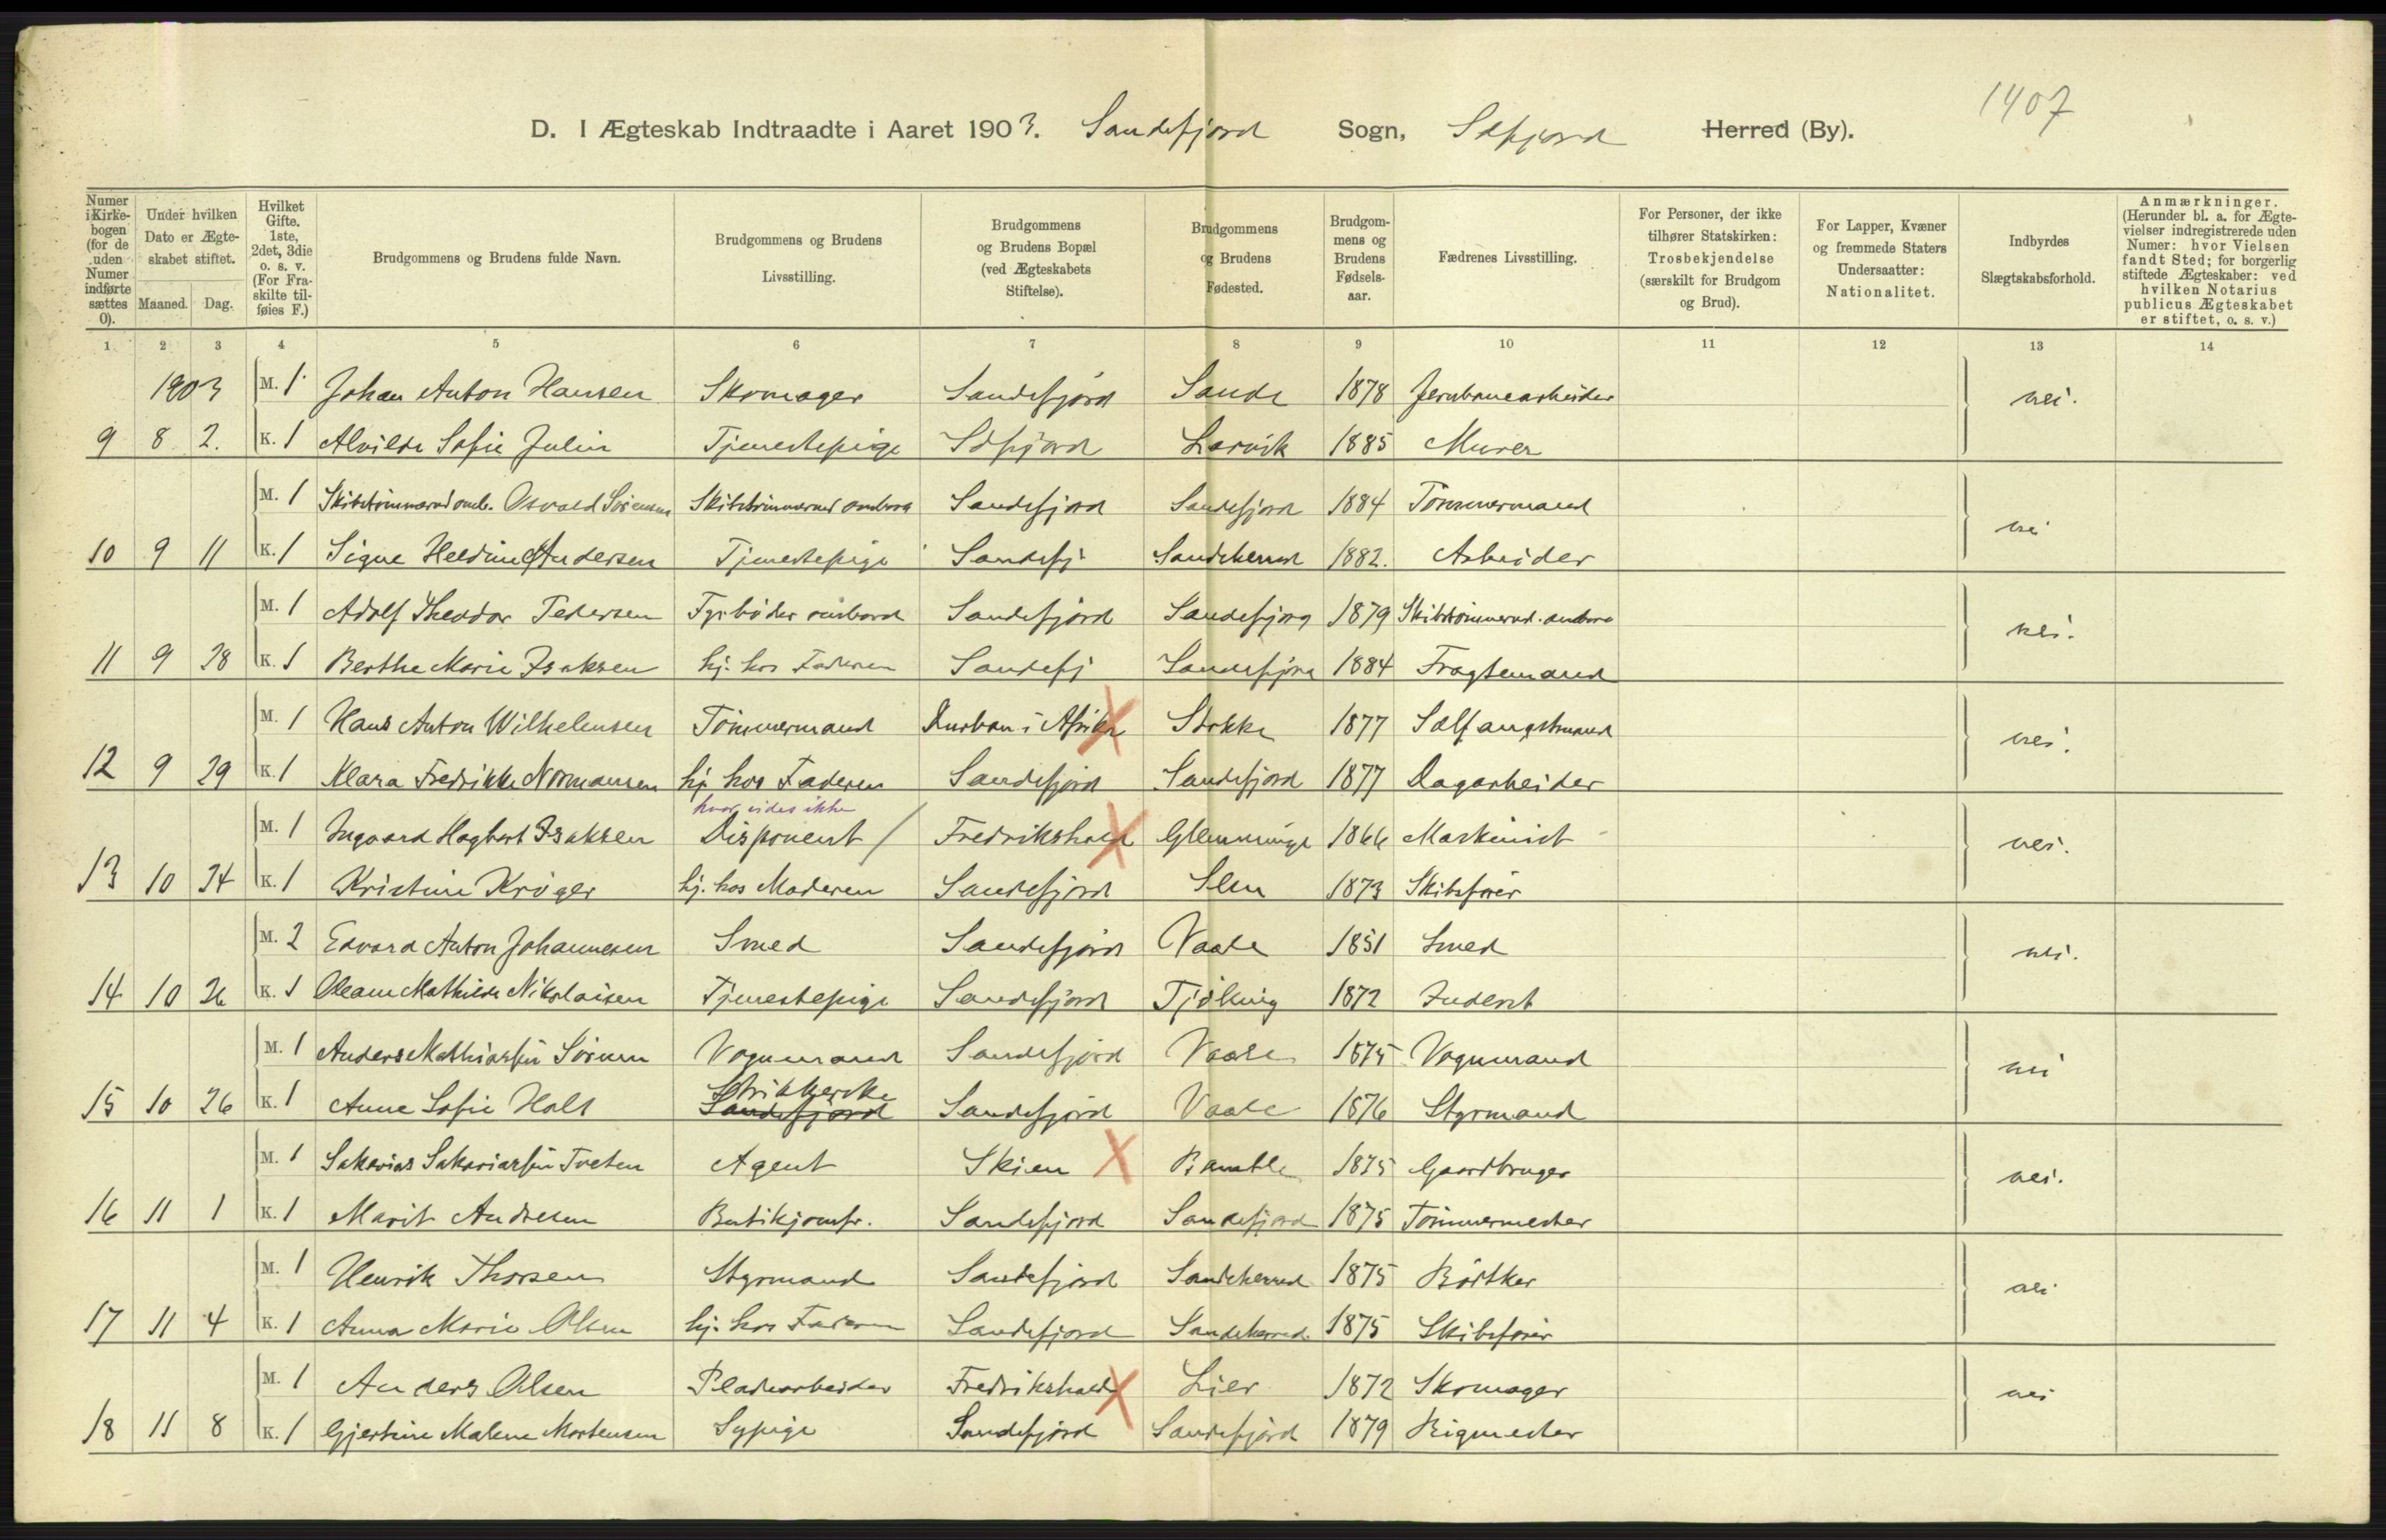 1407
D. I Ægteskab Indtraadte i Aaret 1903. Sandefjord Sogn, Sdfjord Herred (By).
Numer i Kirkebogen (for de uden Numer indførte sættes 0). | Under hvilken Dato er Ægteskabet stiftet. Maaned. Dag. | Hvilket Gifte. 1ste, 2det, 3die o. s. v. (For Fraskilte tilføies F.) | Brudgommens og Brudens fulde Navn. | Brudgommens og Brudens Livsstilling. | Brudgommens og Brudens Bopæl (ved Ægteskabets Stiftelse). | Brudgommens og Brudens Fødested. | Brudgommens og Brudens Fødselsaar. | Fædrenes Livsstilling. | For Personer, der ikke tilhører Statskirken: Trosbekjendelse (særskilt for Brudgom og Brud). | For Lapper, Kvæner og fremmede Staters Undersaatter: Nationalitet. | Indbyrdes Slægtskabsforhold. | Anmærkninger. (Herunder bl. a. for Ægtevielser indregistrerede uden Numer: hvor Vielsen fandt Sted; for borgerlig stiftede Ægteskaber: ved hvilken Notarius publicus Ægteskabet er stiftet, o. s. v.)
1 2 3 4 5 6 7 8 9 10 11 12 13 14
1903 M. 1 Johan Anton Hansen Skomager Sandefjord Sande 1878 Jernbanearbeider nei.
9 8 2. K. 1 Alvilde Sofie Julin Tjenestepige Sdfjord Larvik 1885 Murer
M. 1 Skibstømmermd omb. Osvald Sørensen Skibstømmermd ombord Sandefjord Sandefjord 1884 Tømmermand nei
10 9 11 K. 1 Signe Heldine Andersen Tjenestepige Sandefj Sandeherred 1882. Arbeider
M. 1 Adolf Theodor Pedersen Fyrbøder ombord Sandefjord Sandefjord 1879 Skibstømmermd. ombord nei.
11 9 28 K. 1 Berthe Marie Isaksen hj. hos Faderen Sandefj Sandefjord 1884 Fragtemand
M. 1 Hans Anton Wilhelmsen Tømmermand Durban i Afrika Stokke 1877 Sælfangstmand nei.
12 9 29 K. 1 Klara Fredrikke Normansen hj. hos Faderen Sandefjord Sandefjord 1877 Dagarbeider
hvor vides ikke
M. 1 Ingvard Hagbart Isaksen Disponent / Fredrikshald Glemminge 1866 Maskinist nei.
13 10 24 K. 1 Kristine Krøger hj. hos Moderen Sandefjord Slen 1873 Skibsfører
M. 2 Edvard Anton Johannesen Smed Sandefjord Vaale 1851 Smed nei.
14 10 26 K. 1 Oleane Mathilde Nikolaisen Tjenestepige Sandefjord Tjølling 1872 Inderst
M. 1 Anders Mathiassen Sørum Vognmand Sandefjord Vaale 1875 Vognmand nei
Strikkerske
15 10 26 K. 1 Anne Sofie Holt Sandefjord Sandefjord Vaale 1876 Styrmand
M. 1 Sakarias Sakariassen Tveten Agent Skien Bamble 1875 Gaardbruger nei.
16 11 1 K. 1 Marit Andresen Butikjomfr. Sandefjord Sandefjord 1875 Tømmermester
M. 1 Henrik Thorsen Styrmand Sandefjord Sandeherred 1875 Bødker nei
17 11 4 K. 1 Anna Marie Olsen hj. hos Faderen Sandefjord Sandeherred. 1875 Skibsfører
M. 1 Anders Olsen Pladearbeider Fredrikshald Lier 1872 Skomager nei
18 11 8 K. 1 Gjertine Malene Mortensen Sypige Sandefjord Sandefjord 1879 Rigmester